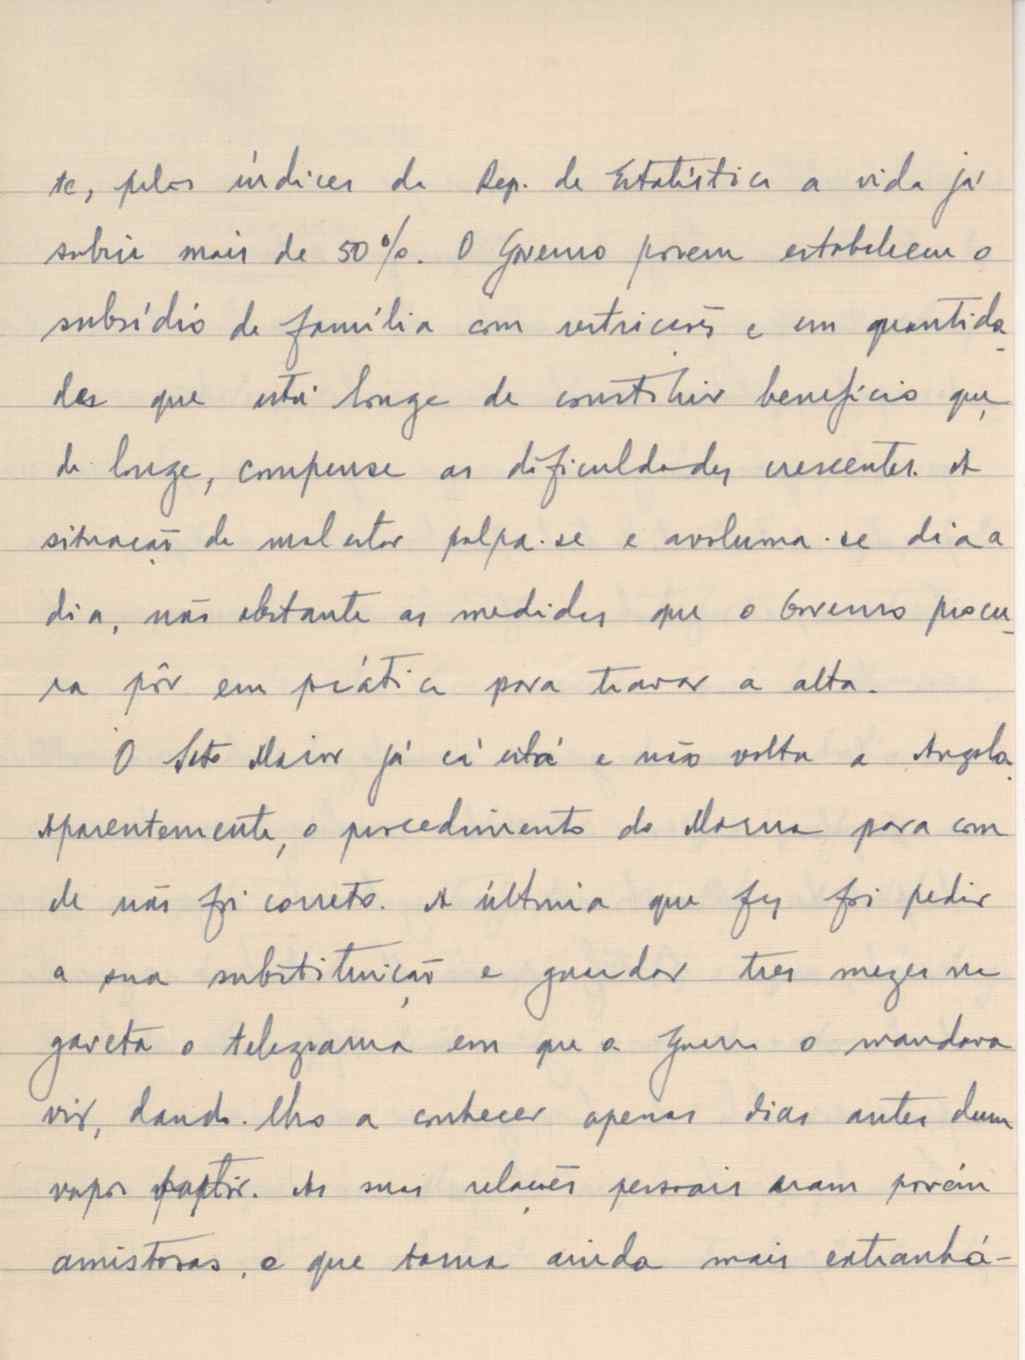 te, pelos índices da Rep. de Estatística a vida já
subiu mais de 50%. O Governo porem estabeleceu o
subsídio de família com restricções e em quantida-
des que está longe de constituir benefício que,
de longe, compense as dificuldades crescentes. A
situação de mal estar palpa-se e avoluma-se dia a
dia, não obstante as medidas que o Governo procu-
ra pôr em prática para travar a alta.
O Soto Maior já cá está e não volta a Angola.
Aparentemente, o procedimento do para com
ele não foi correto. A última que fez foi pedir
a sua substituição e guardar tres mezes na
gaveta o telegrama em que a Guerra o mandava
vir, dando-lho a conhecer apenas dias antes dum
vapor partir. As suas relações pessoais eram porém
amistosas, o que torna ainda mais extranhá-